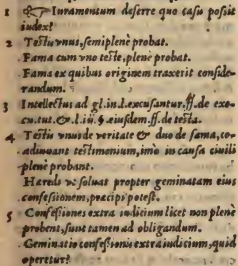 1 ☞ Iuramentum deferre quo casu possit
iudex?
2 Testis vnus, semiplenè probat.
. Fama cum vno teste, plenè probat.
. Fama ex quibus originem traxerit conside-
randum.
3 Intellectus ad gl. in.l. excusantur. ff. de exc
cu. tut. & .l. iij. §. eiusdem. ff. de testa.
4 Testis vnus de veritate & duo de fama, co-
adiuuant testimonium, imò in causa ciuili
plenè probant.
Hæredi vt soluat propter geminatam eius
confessionem, præcipi potest.
5 Confessiones extra iudicium licet non plenè
probent, sunt tamen ad obligandum.
. Geminatio confessionis extra iudicium, quid
operetur?